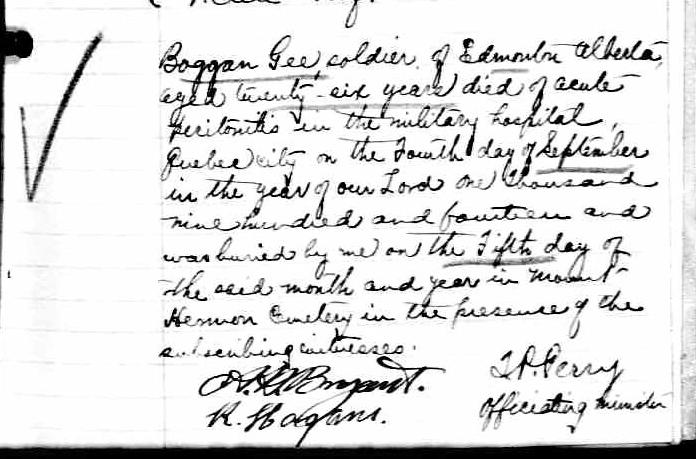 Boggan Gee, soldier, of Edmonton Alberta,
aged twenty-six years died of acute
peritonitis in the military hospital,
Quebec city on the Fourth day of September
in the year of our Lord one thousand
nine hundred and fourteen and
was buried by me on the Fifth day of
the said month and year in Mount
Hermon Cemetery in the presence of the
subscribing witnesses.
Bryant.
K. Hogans.
Perry
Officiating minister